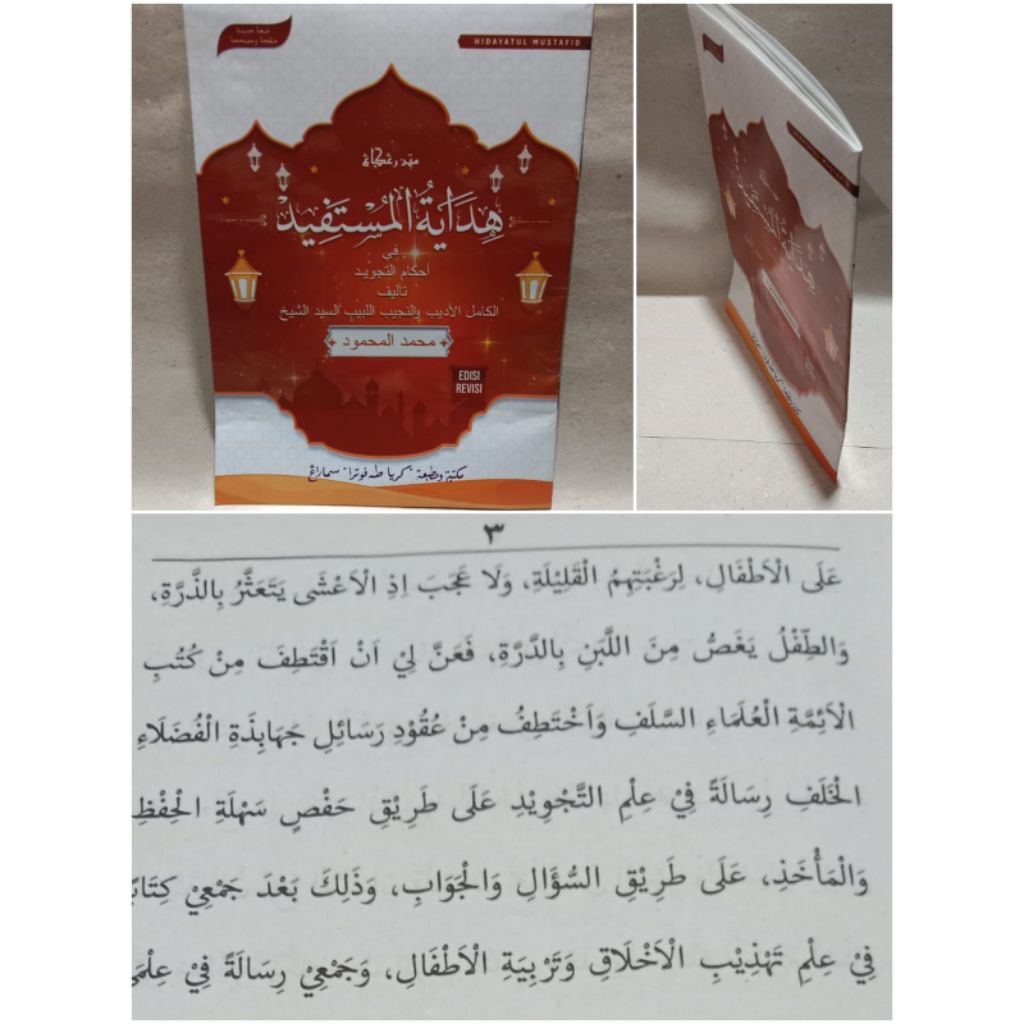 طبعة جديدة
منقحة ومصححة
HIDAYATUL MUSTAFID
هِدَايَةُ المُسْتَفِيْد
في
أحكام التجويد
تأليف
الكامل الأديب والنجيب اللبيب السيد الشيخ
محمد المحمود
EDISI
REVISI
مكتبة ومطبعة "كريا طه فوترا" سماراڠ
٣
عَلَى الْاَطْفَالِ، لِرَغْبَتِهِمُ الْقَلِيْلَةِ، وَلَا عَجَبَ اِذِ الْاَعْشَى يَتَعَثَّرُ بِالذَّرَّةِ،
وَالطِّفْلُ يَغَصُّ مِنَ اللَّبَنِ بِالدَّرَّةِ، فَعَنَّ لِيْ اَنْ اَقْتَطِفَ مِنْ كُتُبِ
الْاَئِمَّةِ الْعُلَمَاءِ السَّلَفِ وَاَخْتَطِفُ مِنْ عُقُوْدِ رَسَائِلِ جَهَابِذَةِ الْفُضَلَاءِ
الْخَلَفِ رِسَالَةً فِيْ عِلْمِ التَّجْوِيْدِ عَلَى طَرِيْقِ حَفْصٍ سَهْلَةِ الْحِفْظِ
وَالْمَأْخَذِ، عَلَى طَرِيْقِ السُّؤَالِ وَالْجَوَابِ، وَذَلِكَ بَعْدَ جَمْعِيْ
فِيْ عِلْمِ تَهْذِيْبِ الْاَخْلَاقِ وَتَرْبِيَةِ الْاَطْفَالِ، وَجَمْعِيْ رِسَالَةً فِيْ